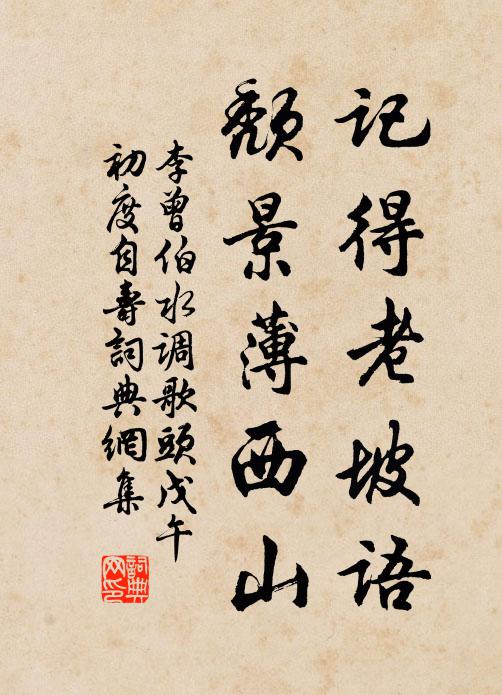 记得老坡语
颓景薄西山
李曾伯水调歌头戊午
初度自寿词典網集
詞典
网印